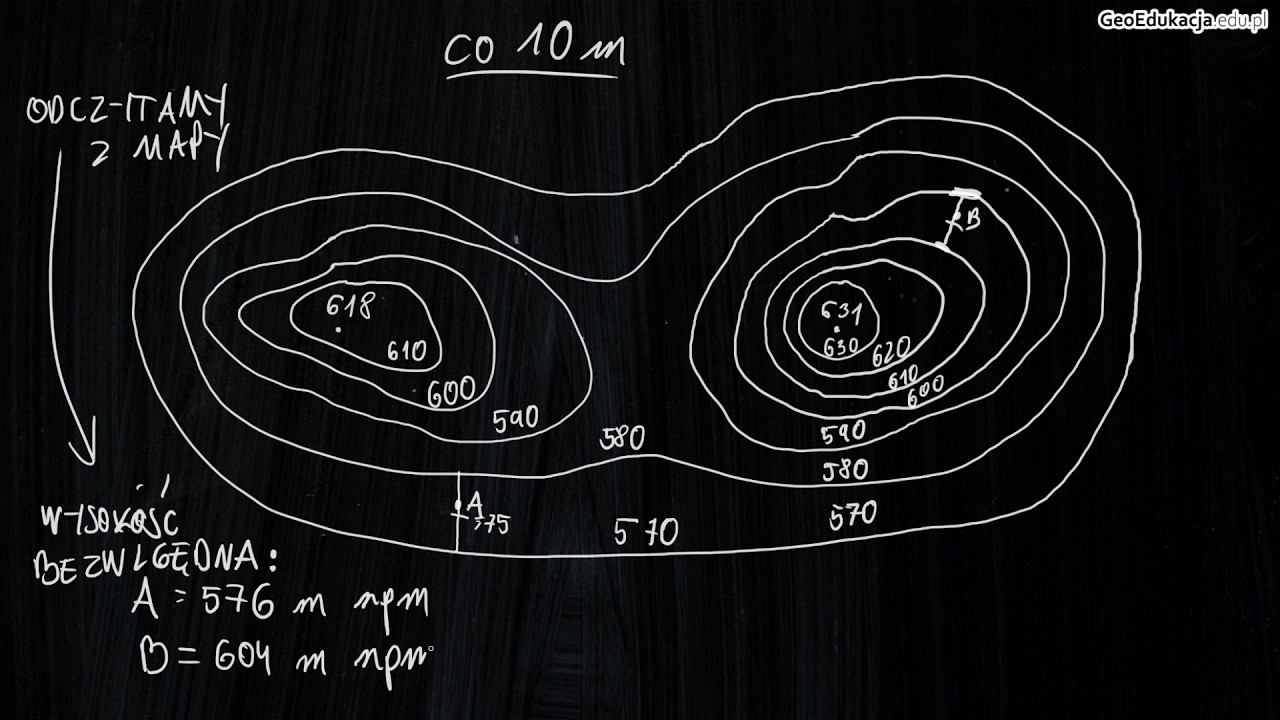 GeoEdukacja.edu.pl
CO 10 m
ODCZYTAMY
Z MAPY
618
610
600
590
580
570
631
630
620
610
600
590
580
570
B
A
575
WYSOKOŚĆ
BEZWLGĘDNA:
A = 576 m npm
B = 604 m npm